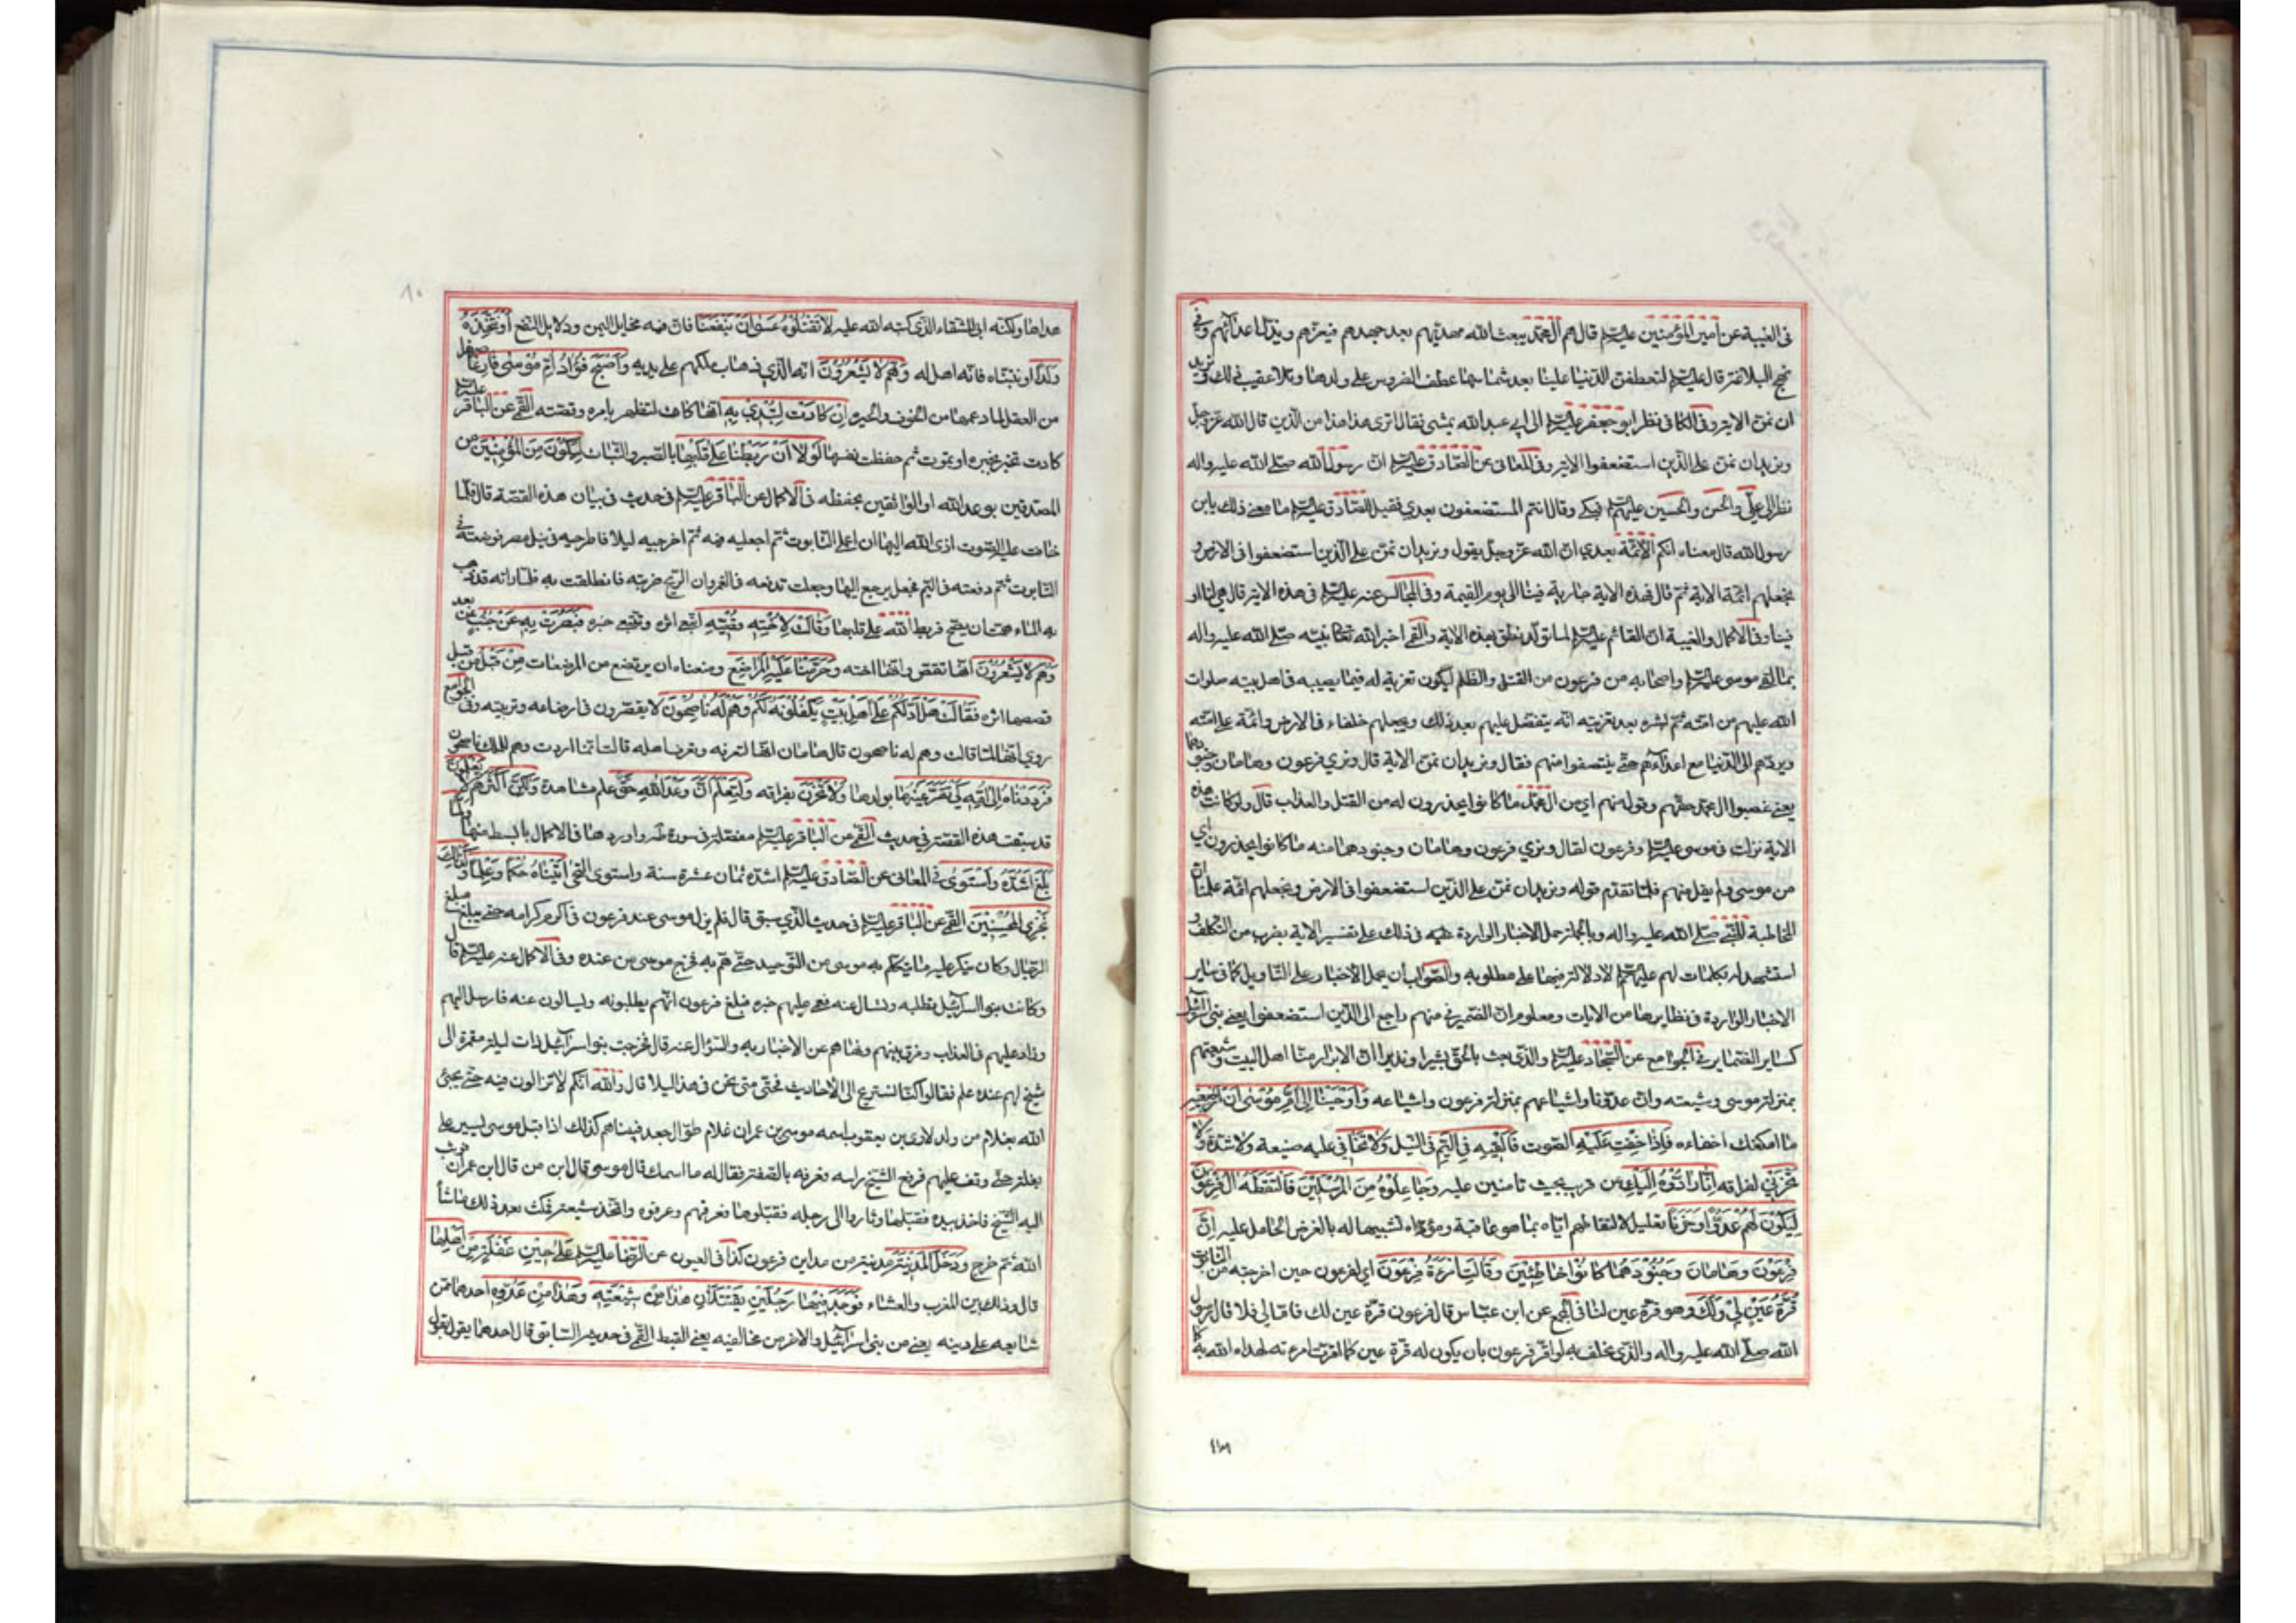 في الغيبة عن امير المؤمنين عليه السلم قال هم آل محمد يبعث الله مهديهم بعد جهدهم فيعزهم ويذل اعدائهم وفي
نهج البلاغة قال عليه السلم لتعطفن الدنيا علينا بعد شماسها عطف الضروس على ولدها وتلا عقيب ذلك ونريد
ان نمن الاية وفي الكافي نظر ابو جعفر عليه السلم الى ابي عبد الله يمشي فقال اترى هذا هذا من الذين قال الله عز وجل
ونريد ان نمن على الذين استضعفوا الاية وفي المعاني عن الصادق عليه السلم ان رسول الله صلى الله عليه واله
نظر الى علي والحسن والحسين عليهم السلم فبكى وقال انتم المستضعفون بعدي فقيل للصادق عليه السلم ما معنى ذلك يابن
رسول الله قال معناه انكم الائمة بعدي ان الله عز وجل يقول ونريد ان نمن على الذين استضعفوا في الارض و
نجعلهم ائمة الاية ثم قال فهذه الاية جارية فينا الى يوم القيمة وفي المجالس عنه عليه السلم في هذه الاية قال هي لنا او
فينا وفي الاكمال والغيبة ان القائم عليه السلم لما تولد نطق بهذه الاية والقمي اخبر الله تعالى نبيه صلى الله عليه واله
بما لقي موسى عليه السلم واصحابه من فرعون من القتل والظلم ليكون تعزية له فيما يصيبه في اهل بيته صلوات
الله عليهم من امته ثم بشره بعد تعزيته انه يتفضل عليهم بعد ذلك ويجعلهم خلفاء في الارض وائمة على امته
ويردهم الى الدنيا مع اعدائهم حتى ينتصفوا منهم فقال ونريد ان نمن الاية قال ونري فرعون وهامان وجنودهما
يعني غصبوا آل محمد حقهم وقوله منهم اي من آل محمد ما كانوا يحذرون له من القتل والعذاب قال ولو كانت هذه
الاية نزلت في موسى عليه السلم وفرعون لقال ونري فرعون وهامان وجنودهما منه ما كانوا يحذرون اي
من موسى ولم يقل منهم فلما تقدم قوله ونريد ان نمن على الذين استضعفوا في الارض ونجعلهم ائمة علمنا ان
المخاطبة للنبي صلى الله عليه واله وبالجملة حمل الاخبار الواردة عليه في ذلك على تفسير الاية بضرب من التكلف و
استشهد له بكلمات لهم عليهم السلم لا دلالة فيها على مطلوبه والصواب ان يحمل الاخبار على التاويل كما في ساير
الاخبار الواردة في نظايرها من الايات ومعلوم ان الضمير في منهم راجع الى الذين استضعفوا يعني بني اسرائيل
كساير الضماير في الجوامع عن السجاد عليه السلم والذي بعث بالحق بشيرا ونذيرا ان الابرار منا اهل البيت وشيعتهم
بمنزلة موسى وشيعته وان عدونا واشياعهم بمنزلة فرعون واشياعه وَأَوْحَيْنَا إِلَى أُمِّ مُوسَى أَنْ أَرْضِعِيهِ
ما امكنك اخفاءه فَإِذَا خِفْتِ عَلَيْهِ الصوت فَأَلْقِيهِ فِي الْيَمِّ في النيل وَلَا تَخَافِي عليه ضيعة ولا شدة وَلَا
تَحْزَنِي لفراقه إِنَّا رَادُّوهُ إِلَيْكِ عن قريب بحيث تامنين عليه وَجَاعِلُوهُ مِنَ الْمُرْسَلِينَ فَالْتَقَطَهُ آلُ فِرْعَوْنَ
لِيَكُونَ لَهُمْ عَدُوًّا وَحَزَنًا تعليل لالتقاطهم اياه بما هو عاقبة ومؤداه تشبيها له بالغرض الحامل عليه إِنَّ
فِرْعَوْنَ وَهَامَانَ وَجُنُودَهُمَا كَانُوا خَاطِئِينَ وَقَالَتِ امْرَأَةُ فِرْعَوْنَ اي لفرعون حين اخرجته من التابوت
قُرَّةُ عَيْنٍ لِي وَلَكَ وهو قرة عين لنا في المجمع عن ابن عباس قال فرعون قرة عين لك فاما لي فلا قال رسول
الله صلى الله عليه واله والذي يحلف به لو اقر فرعون بان يكون له قرة عين كما اقرت امرءته لهداه الله به كما
هداها ولكنه ابى للشقاء الذي كتبه الله عليه لَا تَقْتُلُوهُ عَسَى أَنْ يَنْفَعَنَا فان فيه مخايل اليمن ودلايل النفع أَوْ نَتَّخِذَهُ
وَلَدًا او نتبناه فانه اهل له وَهُمْ لَا يَشْعُرُونَ انه الذي ذهاب ملكهم على يديه وَأَصْبَحَ فُؤَادُ أُمِّ مُوسَى فَارِغًا صفرا
من العقل لما دهمها من الخوف والحيرة إِنْ كَادَتْ لَتُبْدِي بِهِ انها كادت لتظهر بامره وقصته القمي عن الباقر عليه السلم
كادت تخبر بخبره او تموت ثم حفظت نفسها لَوْلَا أَنْ رَبَطْنَا عَلَى قَلْبِهَا بالصبر والثبات لِتَكُونَ مِنَ الْمُؤْمِنِينَ من
المصدقين بوعد الله او الواثقين بحفظه في الاكمال عن الباقر عليه السلم في حديث في بيان هذه القصة قال فلما
خافت عليه الصوت اوحى الله اليها ان اعملي التابوت ثم اجعليه فيه ثم اخرجيه ليلا فاطرحيه في نيل مصر فوضعته في
التابوت ثم دفعته في اليم فجعل يرجع اليها وجعلت تدفعه في الغمر وان الريح ضربته فانطلقت به فلما راته قد ذهب
به الماء همت ان تصيح فربط الله على قلبها وَقَالَتْ لِأُخْتِهِ قُصِّيهِ اتبعي اثره وتتبعي خبره فَبَصُرَتْ بِهِ عَنْ جُنُبٍ عن بعد
وَهُمْ لَا يَشْعُرُونَ انها تقص وانها اخته وَحَرَّمْنَا عَلَيْهِ الْمَرَاضِعَ ومنعناه ان يرتضع من المرضعات مِنْ قَبْلُ من قبل
قصصها اثره فَقَالَتْ هَلْ أَدُلُّكُمْ عَلَى أَهْلِ بَيْتٍ يَكْفُلُونَهُ لَكُمْ وَهُمْ لَهُ نَاصِحُونَ لا يقصرون في ارضاعه وتربيته وفي الجوامع
روي انها لما قالت وهم له ناصحون قال هامان انها لتعرفه وتعرف اهله قالت انما اردت وهم للملك ناصحون
فَرَدَدْنَاهُ إِلَى أُمِّهِ كَيْ تَقَرَّ عَيْنُهَا بولدها وَلَا تَحْزَنَ بفراقه وَلِتَعْلَمَ أَنَّ وَعْدَ اللَّهِ حَقٌّ علم مشاهدة وَلَكِنَّ أَكْثَرَهُمْ لَا يَعْلَمُونَ
قد سبقت هذه القصة في حديث القمي عن الباقر عليه السلم مفصلة في سورة طه واوردها في الاكمال بابسط منها وَلَمَّا
بَلَغَ أَشُدَّهُ وَاسْتَوَى في المعاني عن الصادق عليه السلم اشده ثمان عشرة سنة واستوى التحى آتَيْنَاهُ حُكْمًا وَعِلْمًا وَكَذَلِكَ
نَجْزِي الْمُحْسِنِينَ القمي عن الباقر عليه السلم في حديث الذي سبق قال فلم يزل موسى عند فرعون في اكرم كرامة حتى بلغ مبلغ
الرجال وكان ينكر عليه ما يتكلم به موسى من التوحيد حتى هم به فخرج موسى من عنده وفي الاكمال عنه عليه السلم قال
وكانت بنو اسرائيل تطلبه وتسال عنه فعمي عليهم خبره فبلغ فرعون انهم يطلبونه ويسالون عنه فارسل اليهم
وزاد عليهم في العذاب وفرق بينهم ونهاهم عن الاخبار به والسؤال عنه قال فخرجت بنو اسرائيل ذات ليلة مقمرة الى
شيخ لهم عنده علم فقالوا كنا نستريح الى الاحاديث فحتى متى نحن في هذا البلاء قال والله انكم لا تزالون فيه حتى يجيئ
الله بغلام من ولد لاوي بن يعقوب اسمه موسى بن عمران غلام طوال جعد فبينا هم كذلك اذا قبل موسى يسير على
بغلة حتى وقف عليهم فرفع الشيخ راسه فعرفه بالصفة فقال له ما اسمك قال موسى قال ابن من قال ابن عمران فوثب
اليه الشيخ فاخذ بيده فقبلها وثاروا الى رجله فقبلوها فعرفهم وعرفوه واتخذ شيعة فمكث بعد ذلك ما شاء
الله ثم خرج وَدَخَلَ الْمَدِينَةَ مدينة من مداين فرعون كذا في العيون عن الرضا عليه السلم عَلَى حِينِ غَفْلَةٍ مِنْ أَهْلِهَا
قال وذلك بين المغرب والعشاء فَوَجَدَ فِيهَا رَجُلَيْنِ يَقْتَتِلَانِ هَذَا مِنْ شِيعَتِهِ وَهَذَا مِنْ عَدُوِّهِ احدهما ممن
شايعه على دينه يعني من بني اسرائيل والاخر من مخالفيه يعني القبط القمي في حديثه السابق قال احدهما يقول بقول